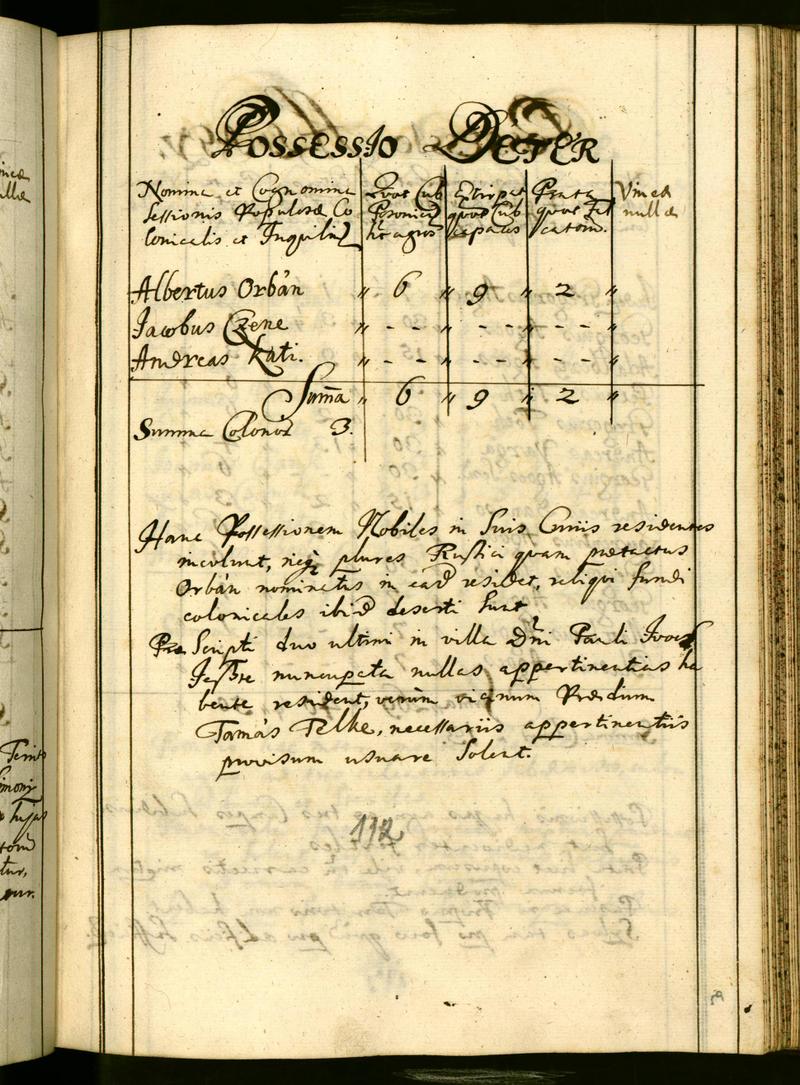 Possessio Déter
Nomina et Cognomina
Sessionis Populosæ Co
lonicalis et Inquilin
Quot Cub
hic agros
Extirpat
quot Cub
capaces
Prata
quot Fal
catorum
Vineæ
nullæ
Albertus Orbán " 6 " 9 " 2 "
Jacobus Czene " - - " - - " - - "
Andreas Kati. " - - " - - " - - "
Sum̃a " 6 " 9 " 2 "
Summa Colonor 3.
Hanc Possessionem Nobiles in Suis Curiis residentes
incolunt, neq plures Rustici quam prætactus
Orbán nominatus in ead residet, reliqui fundi
colonicales ibid deserti sunt
Præ Scripti duo ultimi in villa Dni Pauli
nuncupata nullas appertinentias ha
bente resident, verum vicinum Prædium
Tamás Telke, necessariis appertinentiis
provisum usuare solent.
112